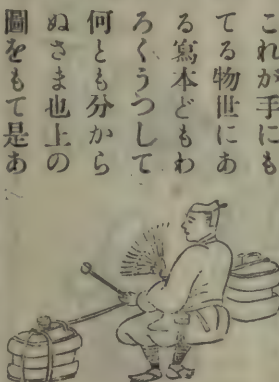 これが手にも
てる物世にあ
る寫本どもわ
ろくうつして
何とも分から
ぬさま也上の
圖をもて是あ